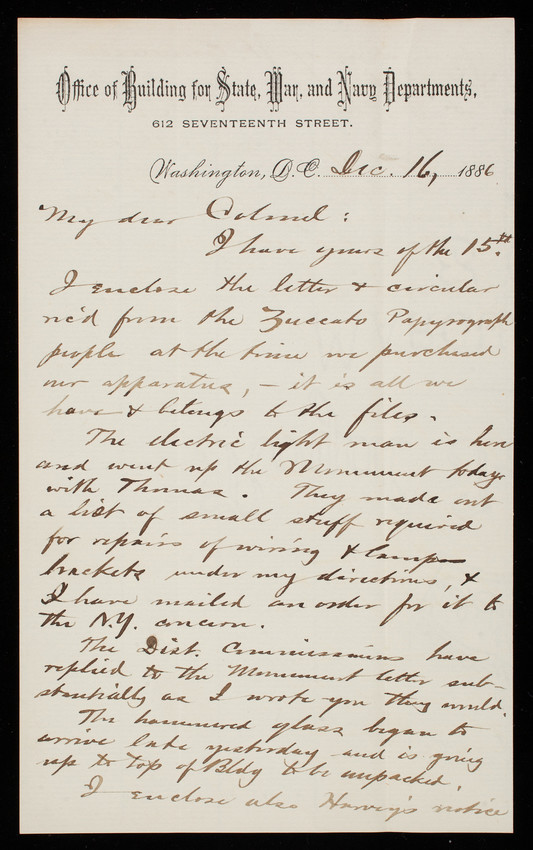 Office of Building for State, War, and Navy Departments,
612 SEVENTEENTH STREET.
Washington, D.C. Dec. 16, 1886
My dear Colonel:
I have yours of the 15th.
I enclose the letter & circular
rec'd from the Zuccato Papyrograph
people at the time we purchased
our apparatus, — it is all we
have & belongs to the files.
The electric light man is here
and went up the Monument today
with Thomas. They made out
a list of small stuff required
for repairs of wiring & lamp
brackets under my directions, &
I have mailed an order for it to
the N.Y. concern.
The Dist. Commissioners have
replied to the Monument letter sub-
stantially as I wrote you they would.
The hammered glass began to
arrive late yesterday and is going
up to top of Bldg to be unpacked.
I enclose also Harvey's notice